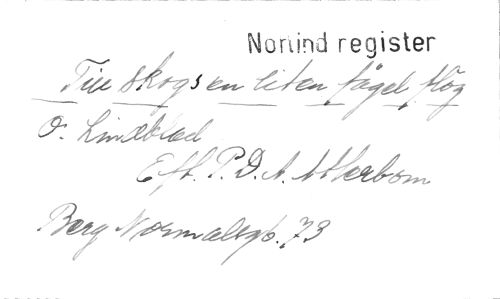 Norlind register
Till skogs en liten fågel flög
O. Lindblad
Eft. P. D. A. Atterbom
Berg Normalsgb. 73